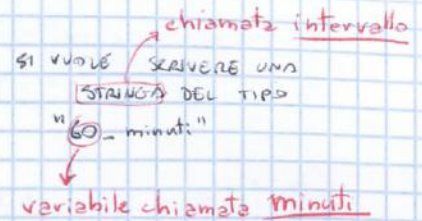 chiamata intervallo
SI VUOLE SCRIVERE UNA
STRINGA DEL TIPO
"60_minuti"
variabile chiamata minuti